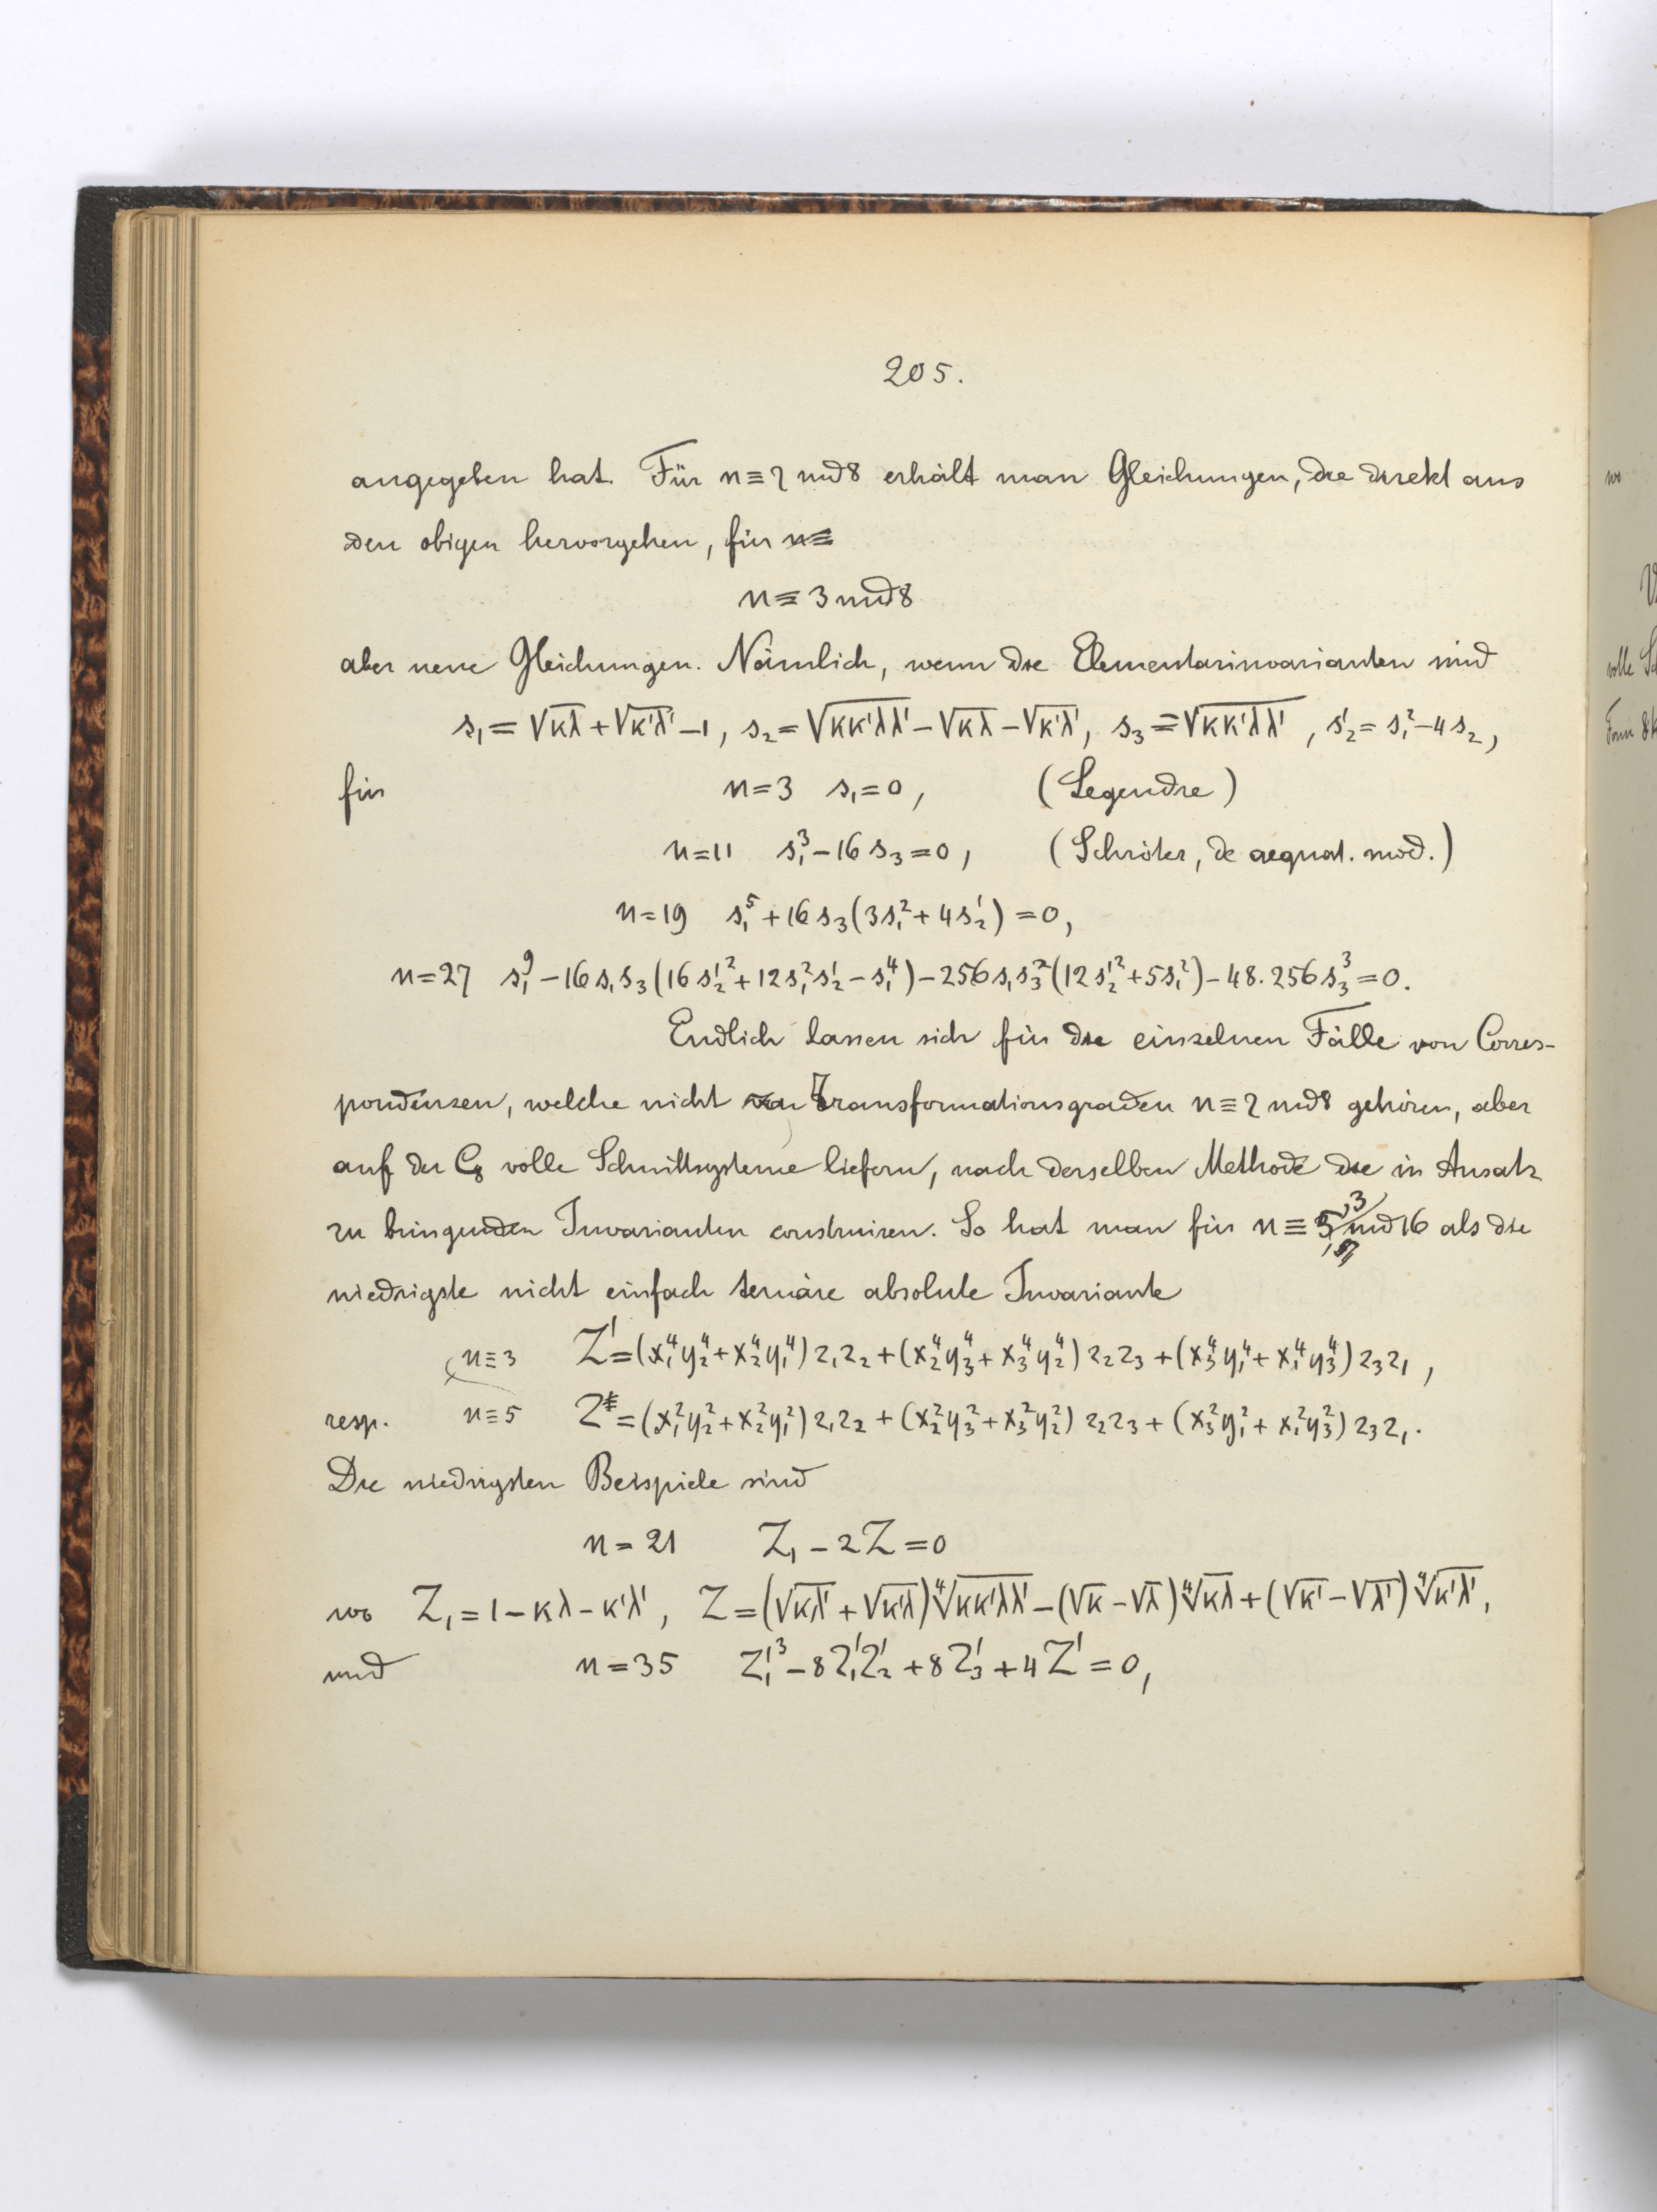 205.
angegeben hat. Für n ≡ 7 mod 8 erhält man Gleichungen, die direkt aus
den obigen hervorgehen, für n≡
n ≡ 3 mod 8
aber neue Gleichungen. Nämlich, wenn die Elementarinvarianten sind
s₁ = √κλ + √κ'λ' − 1, s₂ = √κκ'λλ' − √κλ − √κ'λ', s₃ = √κκ'λλ', s'₂ = s₁² − 4s₂,
für n = 3 s₁ = 0, (Legendre)
n = 11 s₁³ − 16 s₃ = 0, (Schröter, de aequat. mod.)
n = 19 s₁⁵ + 16 s₃ (3s₁² + 4s'₂) = 0,
n = 27 s₁⁹ − 16 s₁s₃ (16 s'₂² + 12 s₁²s'₂ − s₁⁴) − 256 s₁s₃² (12 s'₂² + 5s₁²) − 48.256 s₃³ = 0.
Endlich lassen sich für die einzelnen Fälle von Corres-
pondenzen, welche nicht Transformationsgraden n ≡ 7 mod 8 gehören, aber
auf der C₈ volle Schnittsysteme liefern, nach derselben Methode die in Ansatz
zu bringenden Invarianten construiren. So hat man für n ≡ 3, 5 mod 16 als die
niedrigste nicht einfach ternäre absolute Invariante
n ≡ 3 Z' = (x₁⁴y₂⁴ + x₂⁴y₁⁴) z₁z₂ + (x₂⁴y₃⁴ + x₃⁴y₂⁴) z₂z₃ + (x₃⁴y₁⁴ + x₁⁴y₃⁴) z₃z₁,
resp. n ≡ 5 Z = (x₁²y₂² + x₂²y₁²) z₁z₂ + (x₂²y₃² + x₃²y₂²) z₂z₃ + (x₃²y₁² + x₁²y₃²) z₃z₁.
Die niedrigsten Beispiele sind
n = 21 Z₁ − 2Z = 0
wo Z₁ = 1 − κλ − κ'λ', Z = (√κλ' + √κ'λ) ⁴√κκ'λλ' − (√κ − √λ) ⁴√κλ + (√κ' − √λ') ⁴√κ'λ',
und n = 35 Z'₁³ − 8Z'₁Z'₂ + 8Z'₃ + 4Z' = 0,
wo
volle
Form